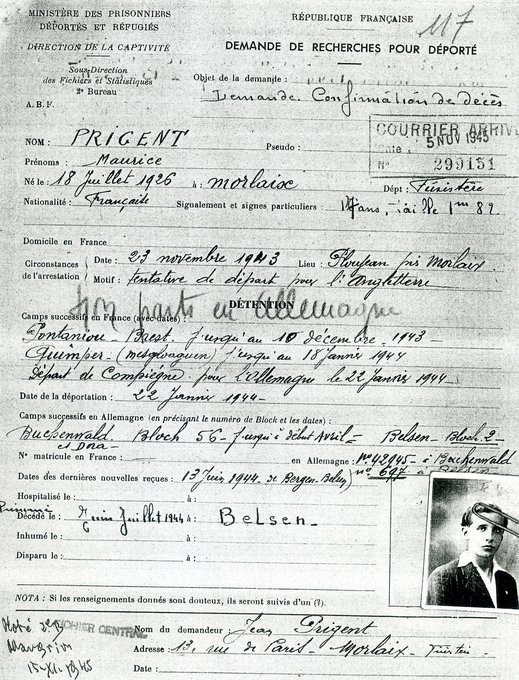 MINISTÈRE DES PRISONNIERS
DÉPORTÉS ET RÉFUGIÉS
DIRECTION DE LA CAPTIVITÉ
Sous-Direction
des Fichiers et Statistiques
2e Bureau
A. B. F.
RÉPUBLIQUE FRANÇAISE
117
DEMANDE DE RECHERCHES POUR DÉPORTÉ
Objet de la demande :
Demande Confirmation de décès
COURRIER ARRIVÉ
5 NOV 1945
N° 299151
NOM : PRIGENT Pseudo :
Prénoms : Maurice
Né le : 18 Juillet 1926 à : Morlaix Dépt : Finistère
Nationalité : Française Signalement et signes particuliers : ans, taille 1m 82
Domicile en France
Circonstances de l'arrestation
Date : 23 novembre 1943 Lieu : Ploujean près Morlaix
Motif : tentative de départ pour l'Angleterre
DÉTENTION
parti en Allemagne
Camps successifs en France (avec dates) :
Pontaniou - Brest jusqu'au 10 décembre 1943
Quimper - (mesgloaguen) jusqu'au 18 Janvier 1944
Départ de Compiègne pour l'Allemagne le 22 Janvier 1944
Date de la déportation : 22 Janvier 1944
Camps successifs en Allemagne (en précisant le numéro de Block et les dates) :
Buchenwald Block 56 - jusqu'à début Avril - Belsen - Block 2
et Dora
N° matricule en France : en Allemagne : N° 42945 à Buchenwald
n° 697 à Belsen
Dates des dernières nouvelles reçues : 13 Juin 1944 de Bergen-Belsen
Hospitalisé le : à :
Présumé
Décédé le : Juin Juillet 1944 à : Belsen
Inhumé le : à :
Disparu le : à :
NOTA : Si les renseignements donnés sont douteux, ils seront suivis d'un (?).
FICHIER CENTRAL
Noté
15-XI-1945
Nom du demandeur : Jean Prigent
Adresse : 13, rue de Paris - Morlaix - Finistère
Date :